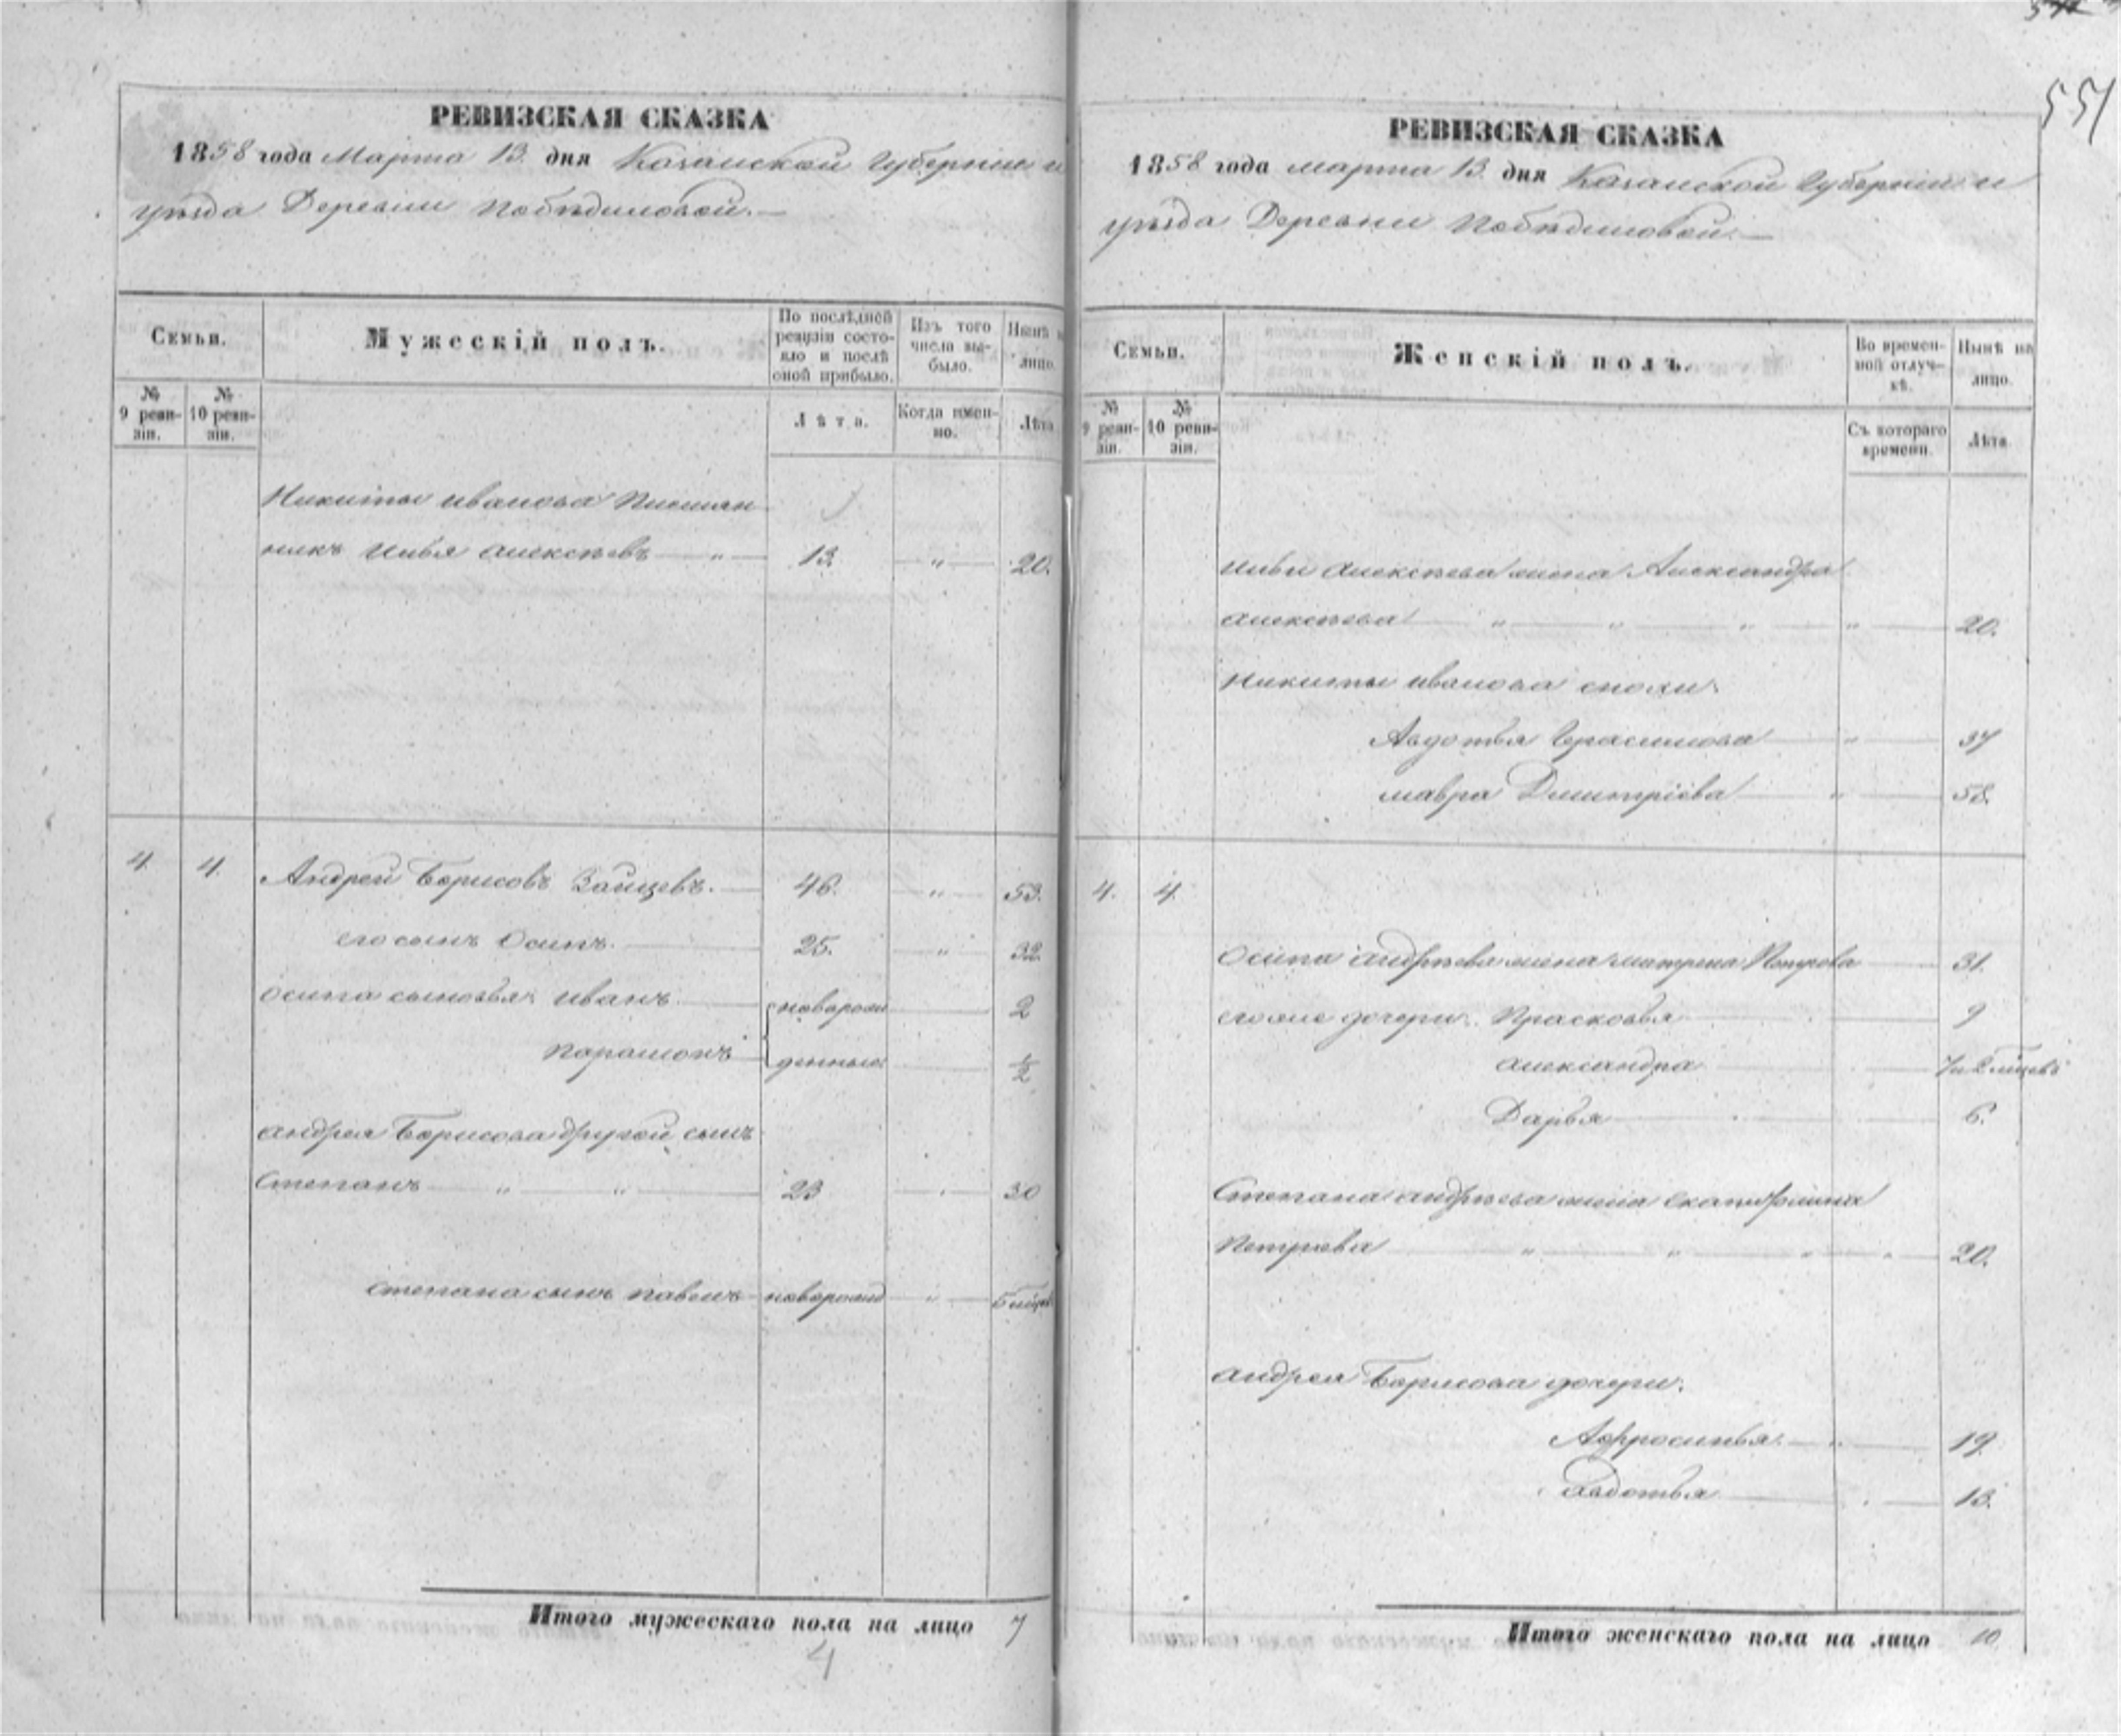 551
РЕВИЗСКАЯ СКАЗКА
1858 года Марта 13 дня Казанской Губерніи и
уѣзда Деревни Побѣдиловой.
Семьи.
Мужескій полъ.
По послѣдней ревизіи состояло и послѣ оной прибыло.
Изъ того числа выбыло.
Нынѣ на лицо.
№ 9 ревизіи.
№ 10 ревизіи.
Лѣта.
Когда именно.
Лѣта
Никиты Иванова
Илья Алексѣевъ " 13. " 20.
4. 4. Андрей Борисовъ Зайцевъ. 46. " 53.
его сынъ Осипъ. 25. " 32.
Осипа сыновья Иванъ новорож 2
Парамонъ денные 1/2
Андрея Борисова другой сынъ
Степанъ " " 23 30
Степана сынъ Павелъ новорожд " 5 мѣсяц
Итого мужескаго пола на лицо 7
4
РЕВИЗСКАЯ СКАЗКА
1858 года марта 13 дня Казанской Губерніи и
уѣзда Деревни Побѣдиловой.
Семьи.
Женскій полъ.
Во временной отлучкѣ.
Нынѣ на лицо.
№ 9 ревизіи.
№ 10 ревизіи.
Съ котораго времени.
Лѣта.
Ильи Алексѣева жена Александра
Алексѣева " " " " 20.
Никиты Иванова снохи
Авдотья Герасимова " 37
Мавра Димитріева " 58.
4. 4.
Осипа Андрѣева жена Матрена Петрова 31.
его же дочери Прасковья 9
Александра
Дарья 6.
Степана Андрѣева жена Екатерина
Петрова " " " " 20.
Андрея Борисова дочери.
Афросинья " 19.
Авдотья 13.
Итого женскаго пола на лицо 10